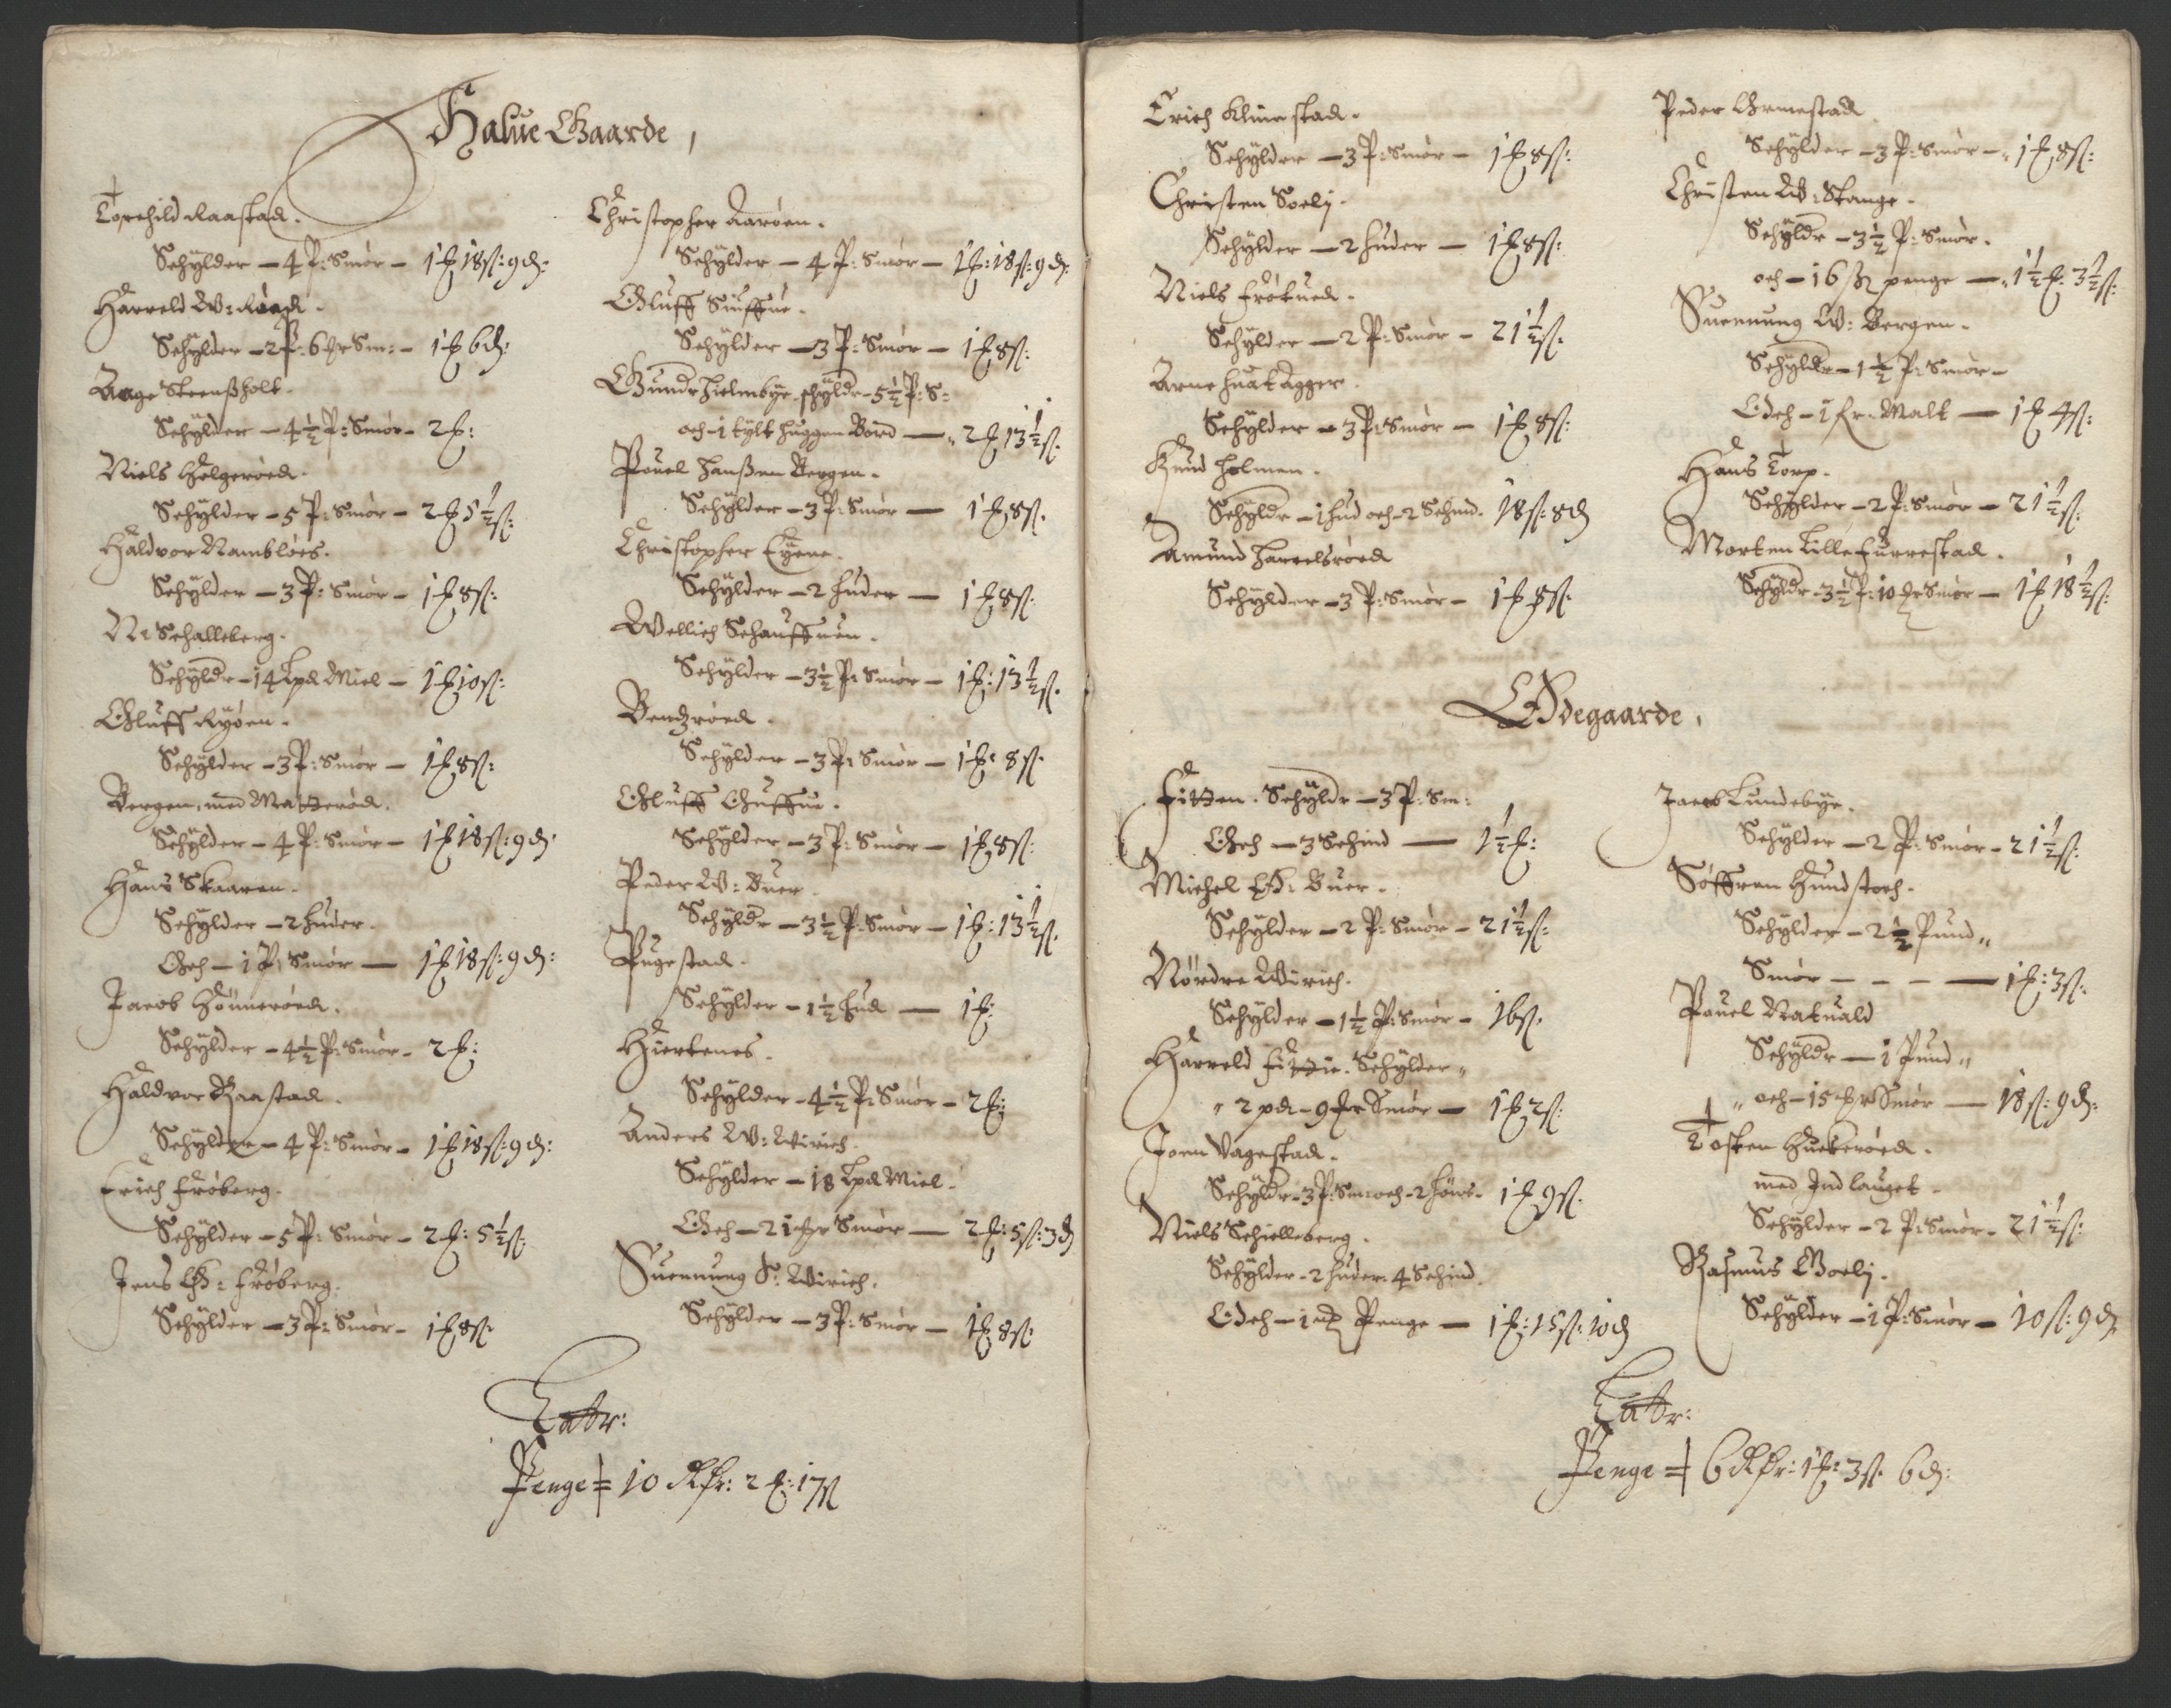 Halue Gaarde,
Torchild Raastad.
Schylder – 4 P: Smør – 1 ℔ 18 ß: 9 d:
Harreld W: Røed.
Schylder – 2 P: 6 mr Sm: – 1 ℔ 6 d:
Aage Steensholt.
Schylder – 4½ P: Smør – 2 ℔:
Niels Helgerøed.
Schylder – 5 P: Smør – 2 ℔ 5½ ß:
Haldvor Rambløes.
Schylder – 3 P: Smør – 1 ℔ 8 ß:
N: Schalleberg.
Schyldr – 14 Lpd Miel – 1 ℔ 10 ß:
Oluff Ryøen.
Schylder – 3 P: Smør – 1 ℔ 8 ß:
Bergen, med Matterød.
Schylder – 4 P: Smør – 1 ℔ 18 ß: 9 d:
Hans Skaaren.
Schylder – 2 huder.
Och – 1 P: Smør – 1 ℔ 18 ß: 9 d:
Jacob Hønnerøed.
Schylder – 4½ P: Smør – 2 ℔:
Haldvor Raastad.
Schylder – 4 P: Smør – 1 ℔ 18 ß: 9 d:
Erich Frøberg.
Schylder – 5 P: Smør – 2 ℔: 5½ ß:
Jens Ø: Frøberg.
Schylder – 3 P: Smør – 1 ℔ 8 ß:
Christopher Aarøen.
Schylder – 4 P: Smør – 1 ℔: 18 ß: 9 d:
Oluff
Schylder – 3 P: Smør – 1 ℔ 8 ß:
Gundr Hielmbye. schyldr – 5½ P: S:
och – 1 tylt huggen Bord – 2 ℔ 13½ ß:
Pouel Hanssen Bergen.
Schylder – 3 P: Smør – 1 ℔ 8 ß.
Christopher Eyene.
Schylder – 2 huder – 1 ℔ 8 ß:
Wellich Schauffuen.
Schylder – 3½ P: Smør – 1 ℔: 13½ ß.
Bentzrøed.
Schylder – 3 P: Smør – 1 ℔: 8 ß.
Oluff Guffue.
Schylder – 3 P: Smør – 1 ℔ 8 ß:
Peder W: Buer.
Schyldr – 3½ P: Smør – 1 ℔: 13½ ß.
Pugestad.
Schylder – 1½ hud – 1 ℔:
Hiertenes.
Schylder – 4½ P: Smør – 2 ℔:
Anders W: Wirich.
Schylder – 18 Lpd Miel.
Och – 21 mr Smør – 2 ℔: 5 ß: 3 d
Suennung S: Wirich.
Schylder – 3 P: Smør – 1 ℔ 8 ß:
Latr:
Penge = 10 Rdr: 2 ℔: 17 ß
Erich Klinestad.
Schylder – 3 P: Smør – 1 ℔ 8 ß:
Christen Soelj.
Schylder – 2 huder – 1 ℔ 8 ß:
Niels Frøtued.
Schylder – 2 P: Smør – 21½ ß.
Arne Huatagger.
Schylder – 3 P: Smør – 1 ℔ 8 ß:
Knud Holmen.
Schyldr – 1 hud och – 2 Schind. 18 ß: 8 d
Amund Harrelsrøed
Schylder – 3 P: Smør – 1 ℔ 8 ß:
Peder Ormestad.
Schylder – 3 P: Smør – 1 ℔ 8 ß:
Christen W: Stange.
Schyldr – 3½ P: Smør.
och – 16 ß penge – 1½ ℔: 3½ ß:
Suennung W: Bergen.
Schyldr – 1½ P: Smør –
Och – 1 Malt – 1 ℔ 4 ß:
Hans Torp.
Schylder – 2 P: Smør – 21½ ß:
Morten Lille Furrestad.
Schyldr – 3½ P: 10 mr Smør – 1 ℔ 18½ ß:
Ødegaarde,
Fitten. Schyldr – 3 P: Sm:
Och – 3 Schind – 1½ ℔:
Michel Ø: Buer.
Schylder – 2 P: Smør – 21½ ß:
Nordre Wirich.
Schylder – 1½ P: Smør – 16 ß.
Harreld Fittie. Schylder „
„ 2 pd – 9 mr Smør – 1 ℔ 2 ß:
Joen Vagestad.
Schyldr – 3 P: Sm: och – 2 høns. 1 ℔ 9 ß.
Niels Schielleberg.
Schylder – 2 huder. 4 Schind.
Och – 1 Penge – 1 ℔: 15 ß: 10 d
Jacob Lundebye.
Schylder – 2 P: Smør – 21½ ß:
Søffren Hundstoch.
Schylder – 2½ Pund „
Smør – – – – 1 ℔: 3 ß:
Pouel Ratuald
Schyldr – 1 Pund „
„ och – 15 mr Smør – 18 ß: 9 d:
Tosten Huekerøed.
med Jndlauget.
Schylder – 2 P: Smør – 21½ ß:
Rasmus Goelj.
Schylder – 1 P: Smør – 10 ß: 9 d.
Latr:
Penge = 6 Rdr: 1 ℔: 3 ß. 6 d: